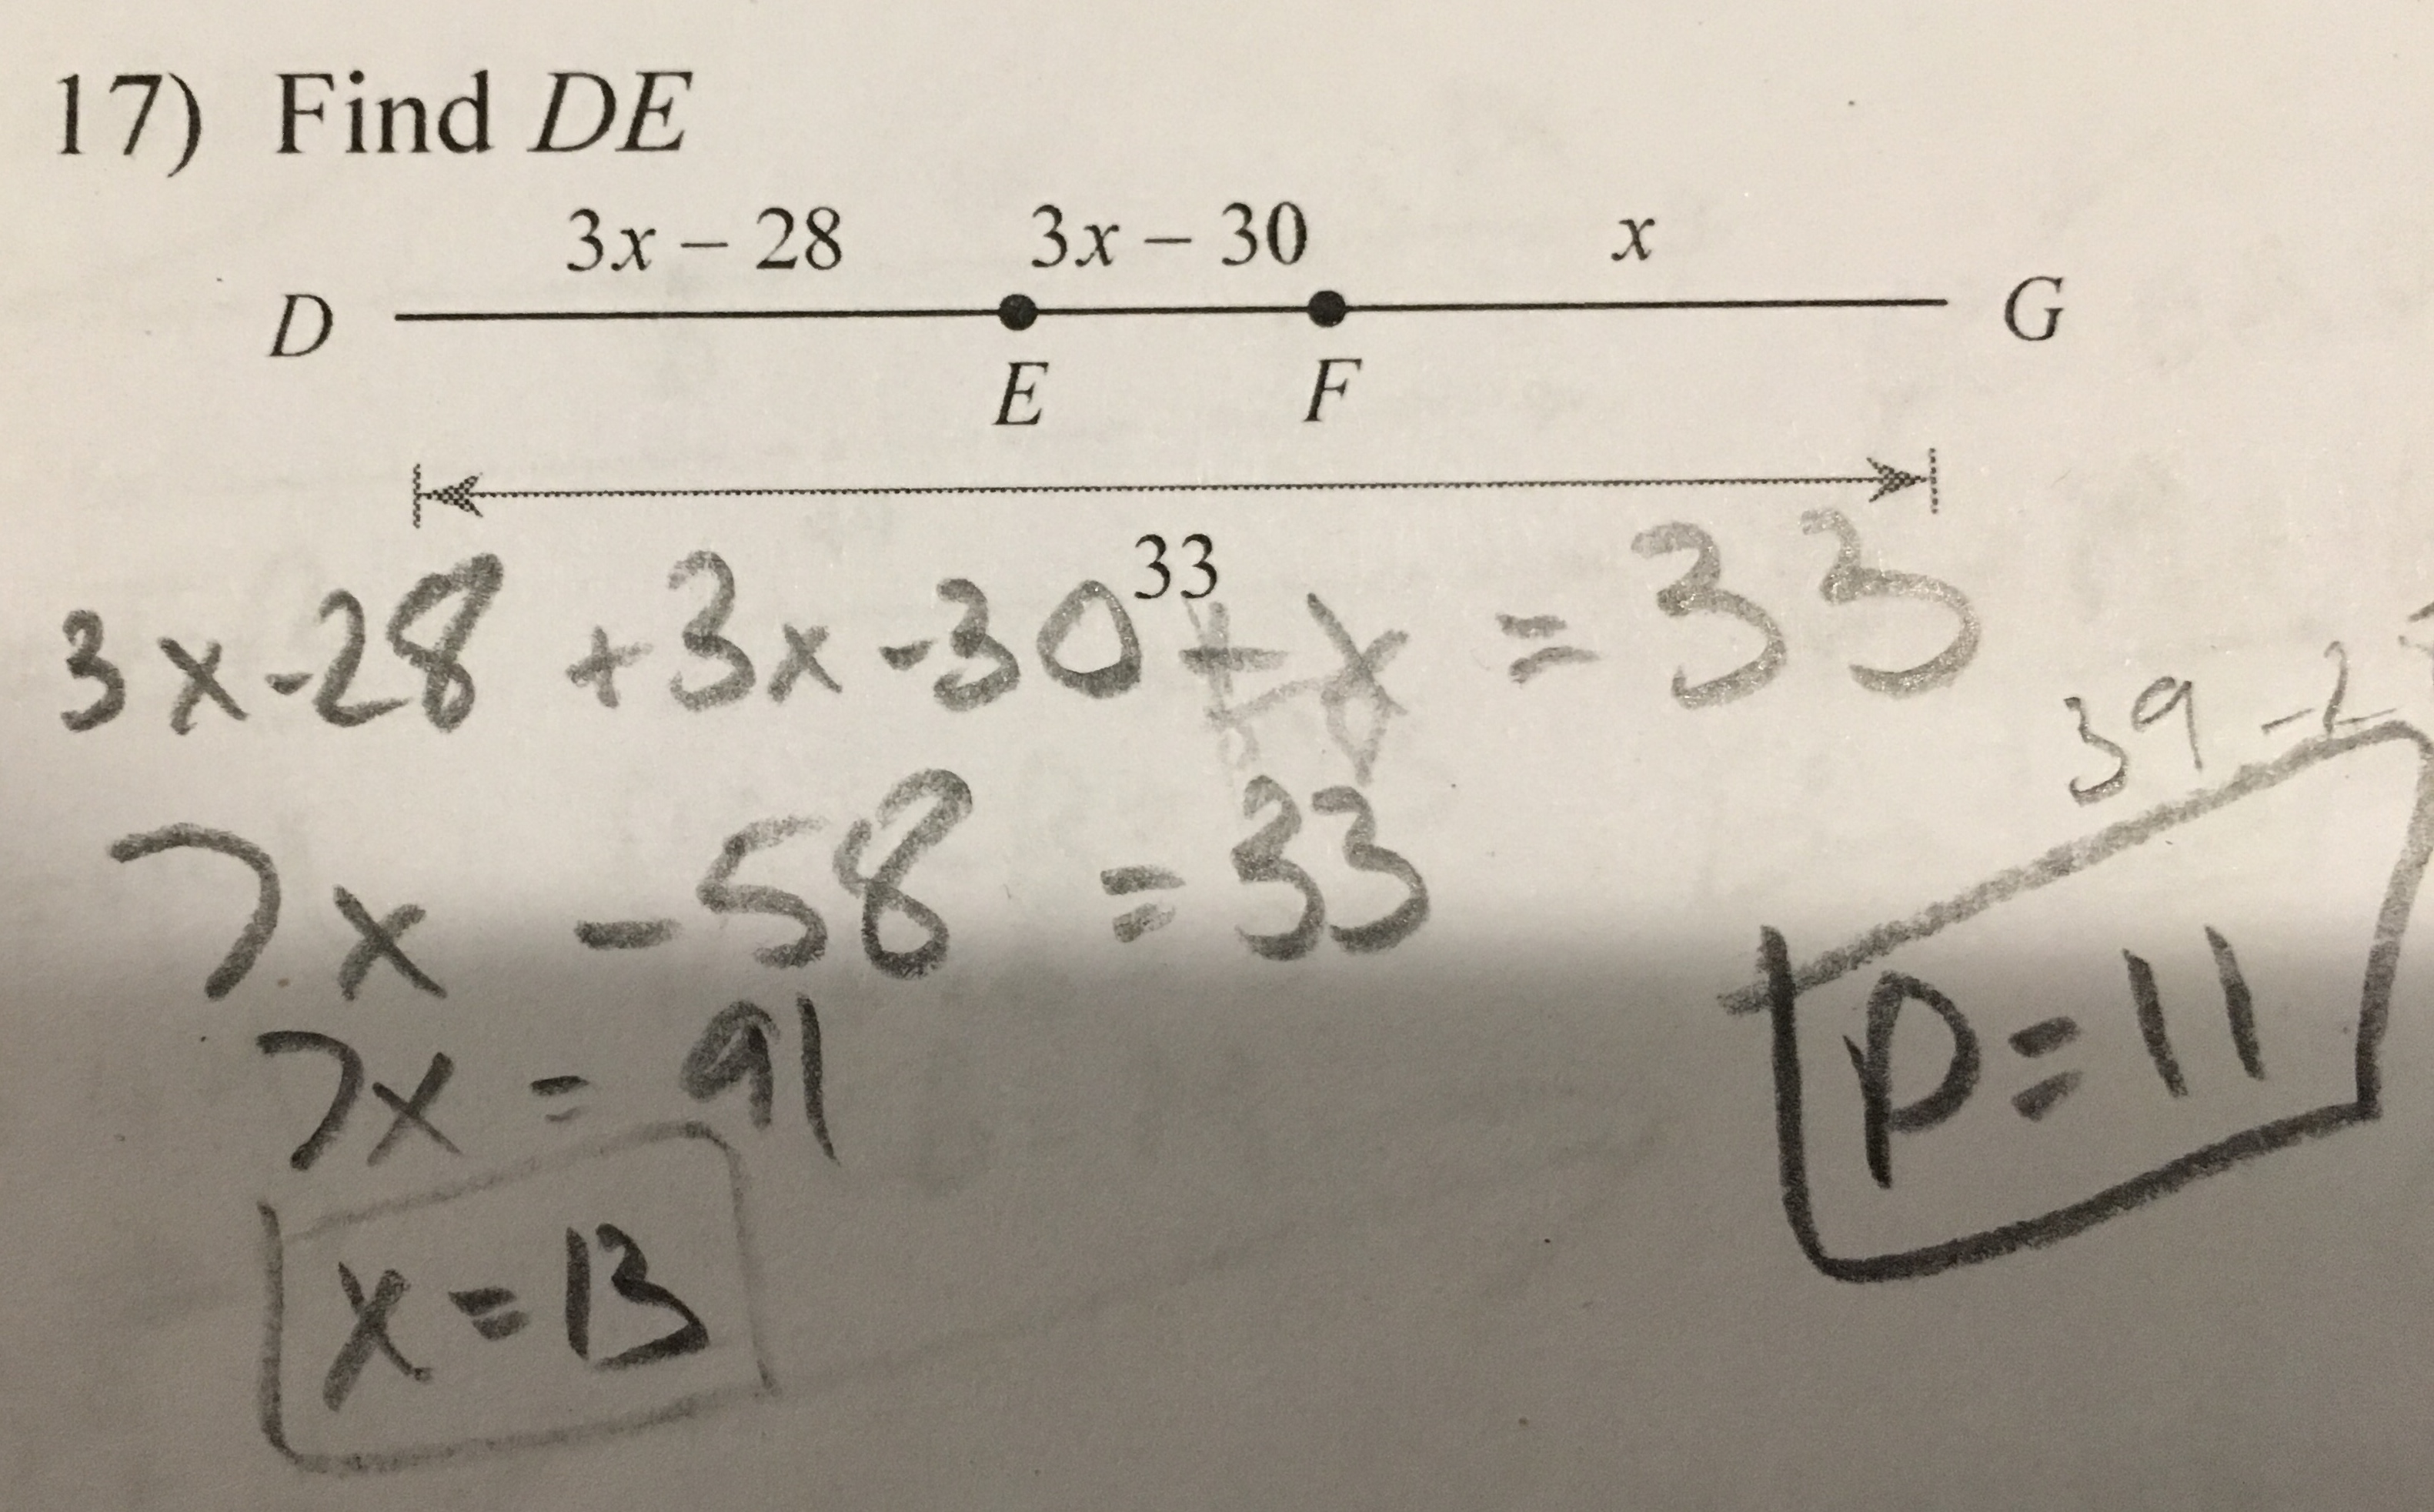 17) Find DE
3x – 28 3x – 30 x
D G
E F
33
3x-28 +3x-30 + x = 33
39 -2
7x - 58 = 33
7x = 91
P = 11
x = 13